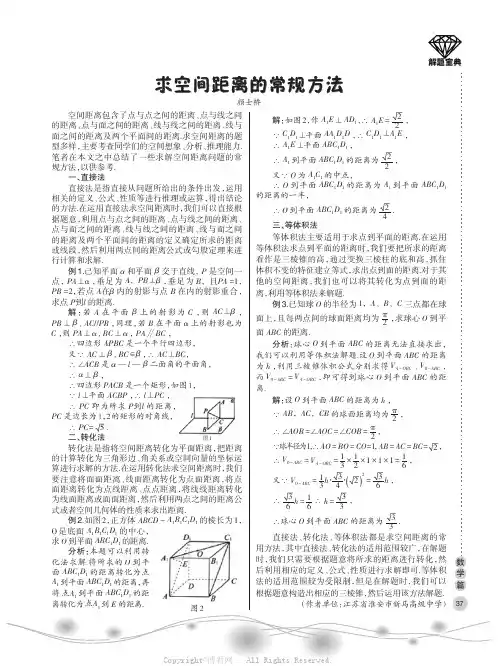 解题宝典
求空间距离的常规方法
颜士桥
空间距离包含了点与点之间的距离、点与线之间
的距离、点与面之间的距离、线与线之间的距离、线与
面之间的距离及两个平面间的距离.求空间距离的题
型多样,主要考查同学们的空间想象、分析、推理能力.
笔者在本文之中总结了一些求解空间距离问题的常
规方法,以供参考.
一、直接法
直接法是指直接从问题所给出的条件出发,运用
相关的定义、公式、性质等进行推理或运算,得出结论
的方法.在运用直接法求空间距离时,我们可以直接根
据题意,利用点与点之间的距离、点与线之间的距离、
点与面之间的距离、线与线之间的距离、线与面之间
的距离及两个平面间的距离的定义确定所求的距离
或线段,然后利用两点间的距离公式或勾股定理来进
行计算和求解.
例1.已知平面α和平面β交于直线l,P是空间一
点,PA⊥α,垂足为A,PB⊥β,垂足为B,且PA=1,
PB=2,若点A在β内的射影与点B在α内的射影重合,
求点P到l的距离.
解:若A在平面β上的射影为C,则AC⊥β,
PB⊥β,AC//PB,同理,若B在平面α上的射影也为
C,则PA⊥α,BC⊥α,PA∥BC,
∴四边形APBC是一个平行四边形,
又∵AC⊥β,BC⊂β,∴AC⊥BC,
∴∠ACB是α—l—β二面角的平面角,
∴α⊥β,
∴四边形PACB是一个矩形,如图1,
∵l⊥平面ACBP,∴l⊥PC,
∴PC即为所求P到l的距离,
PC是边长为1,2的矩形的对角线,
∴PC=√5.
图1
二、转化法
转化法是指将空间距离转化为平面距离,把距离
的计算转化为三角形边、角关系或空间向量的坐标运
算进行求解的方法.在运用转化法求空间距离时,我们
要注意将面面距离、线面距离转化为点面距离,将点
面距离转化为点线距离、点点距离,将线线距离转化
为线面距离或面面距离,然后利用两点之间的距离公
式或者空间几何体的性质来求出距离.
例2.如图2,正方体ABCD-A₁B₁C₁D₁的棱长为1,
O是底面A₁B₁C₁D₁的中心,
求O到平面ABC₁D₁的距离.
分析:本题可以利用转
化法求解.将所求的O到平
面ABC₁D₁的距离转化为点
A₁到平面ABC₁D₁的距离,再
将点A₁到平面ABC₁D₁的距
离转化为点A₁到E的距离.
图2
解:如图2,作A₁E⊥AD₁,∴A₁E=√2/2,
∵C₁D₁⊥平面AA₁D₁D,∴C₁D₁⊥A₁E,
∴A₁E⊥平面ABC₁D₁,
∴A₁到平面ABC₁D₁的距离为√2/2,
又∵O为A₁C₁的中点,
∴O到平面ABC₁D₁的距离为A₁到平面ABC₁D₁
的距离的一半,
∴O到平面ABC₁D₁的距离为√2/4.
三、等体积法
等体积法主要适用于求点到平面的距离.在运用
等体积法求点到平面的距离时,我们要把所求的距离
看作是三棱锥的高,通过变换三棱柱的底和高,抓住
体积不变的特征建立等式,求出点到面的距离.对于其
他的空间距离,我们也可以将其转化为点到面的距
离,利用等体积法来解题.
例3.已知球O的半径为1,A、B、C三点都在球
面上,且每两点间的球面距离均为π/2,求球心O到平
面ABC的距离.
分析:球心O到平面ABC的距离无法直接求出,
我们可以利用等体积法解题.设O到平面ABC的距离
为h,利用三棱锥体积公式分别求得V_{O-ABC}、V_{A-OBC},
而V_{O-ABC}=V_{A-OBC},即可得到球心O到平面ABC的距
离.
解:设O到平面ABC的距离为h,
∵AB、AC、CB的球面距均为π/2,
∴∠AOB=∠AOC=∠COB=π/2,
∵球半径为1,∴AO=BO=CO=1,AB=AC=BC=√2,
∴V_{O-ABC}=V_{A-OBC}=1/3×1/2×1×1×1=1/6,
又∵V_{O-ABC}=1/3h·√3/4(√2)²=√3/6h,
∴√3/6h=1/6,∴h=√3/3,
∴球心O到平面ABC的距离为√3/3.
直接法、转化法、等体积法都是求空间距离的常
用方法,其中直接法、转化法的适用范围较广,在解题
时,我们只需要根据题意将所求的距离进行转化,然
后利用相应的定义、公式、性质进行求解即可.等体积
法的适用范围较为受限制,但是在解题时,我们可以
根据题意构造出相应的三棱锥,然后运用该方法解题.
(作者单位:江苏省淮安市新马高级中学)
数学篇
37
Copyright©博看网 . All Rights Reserved.